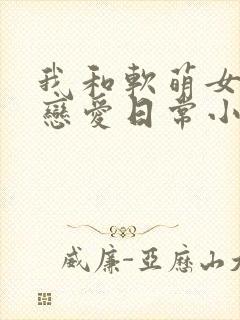 我和軟萌女
戀愛日常小
威廉-亞歷山大